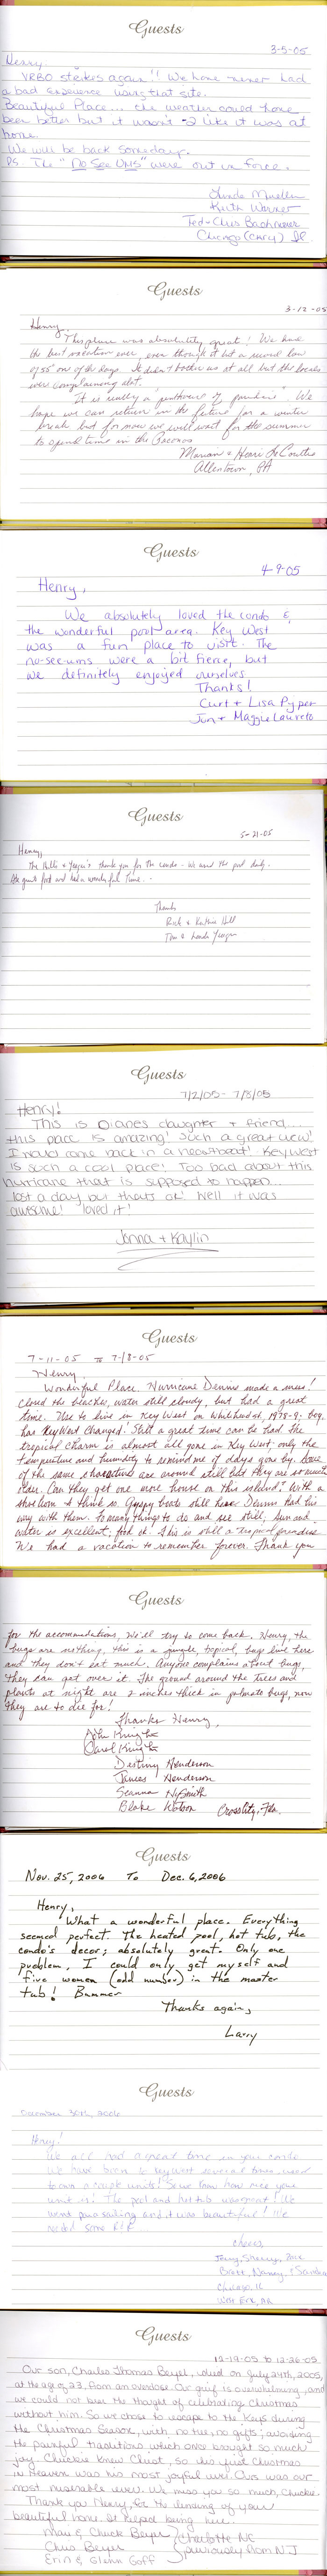 Guests
3-5-05
Henry,
VRBO strikes again!! We have never had
a bad experience using that site.
Beautiful Place... the weather could have
been better but it wasn't -2 like it was at
home.
We will be back someday.
PS. The "No See UMS" were out in force.
Linda Mueller
Keith Werner
Ted + Chris Bachmeier
Chicago (Cary) Il
Guests
3-12-05
Henry,
This place was absolutely great! We had
the best vacation ever, even though it hit a record low
of 55° one of the days. It didn't bother us at all but the locals
were complaining alot.
It is really a "panthouse of paradise". We
hope we can return in the future for a winter
break but for now we will wait for the summer
to spend time in the Poconos
Marian + Henri
Allentown, PA
Guests
4-9-05
Henry,
We absolutely loved the condo &
the wonderful pool area. Key West
was a fun place to visit. The
no-see-ums were a bit fierce, but
we definitely enjoyed ourselves
Thanks!
Curt + Lisa Pyper
Jon + Maggie Laureto
Guests
5-21-05
Henry,
The & Yeager's thank you for the condo. We used the pool daily.
Ate great food and had a wonderful time.
Thanks
Rick & Kathie Hall
Tom & Linda Yeager
Guests
7/2/05 - 7/8/05
Henry!
This is Dianes daughter + friend...
this place is amazing! Such a great view!
I would come back in a heartbeat! Key West
is such a cool place! Too bad about this
hurricane that is supposed to happen...
lost a day but thats ok! Well it was
awesome! loved it!
Jenna + Kaylin
Guests
7-11-05 to 7-18-05
Henry,
Wonderful Place. Hurricane Dennis made a mess!
Closed the beaches, water still cloudy, but had a great
time. Use to live in Key West on Whitehead st, 1978-9. Boy,
has Key West Changed! Still a great time can be had. The
tropical charm is almost all gone in Key West, only the
temperature and humidity to remind me of days gone by. Some
of the same characters are around still but they are so much
older. Can they get one more house on this island? With a
shoehorn I think so. Gypsy boats still here Dennis had his
way with them. So many things to do and see still, sun and
water is excellent, food ok. This is still a tropical paradise.
We had a vacation to remember forever. Thank you
Guests
for the accommodations, We'll try to come back, Henry, the
bugs are nothing, this is a jungle, topical, bugs live here
and they don't eat much. Anyone complains about bugs,
they can get over it. The ground around the trees and
plants at night are 2 inches thick in palmeto bugs, now
they are to die for!
Thanks Henry,
John Knight
Carol Knight
Destiny Henderson
Henderson
Seanna NeSmith
Blake Watson Cross City, Fla.
Guests
Nov. 25, 2006 To Dec. 6, 2006
Henry,
What a wonderful place. Everything
seemed perfect. The heated pool, hot tub, the
condo's decor; absolutely great. Only one
problem, I could only get myself and
five women (odd number) in the master
tub! Bummer
Thanks again,
Larry
Guests
December 30th, 2006
Henry!
We all had a great time in your condo
We have been to Key West several times, used
to own a couple units! So we know how nice your
unit is! The pool and hot tub was great! We
went para sailing and it was beautiful! We
needed some R&R
Cheers,
Jerry, Sherry, Zack
Brett, Nancy, + Sandra
Chicago, IL
West Fork, AR
Guests
12-19-05 to 12-26-05
Our son, Charles Thomas Beyer, died on July 24th, 2005,
at the age of 23, from an overdose. Our grief is overwhelming, and
we could not bear the thought of celebrating Christmas
without him. So we chose to escape to the Keys during
the Christmas Season, with no tree, no gifts; avoiding
the painful traditions which once brought so much
joy. Chuckie knew Christ, so this first Christmas
in Heaven was his most joyful ever. Ours was our
most miserable ever. We miss you so much, Chuckie.
Thank you Henry, for the lending of your
beautiful home. It helped being here.
Mary & Chuck Beyer Charlotte NC
Chris Beyer previously from NJ
Erin & Glenn Goff